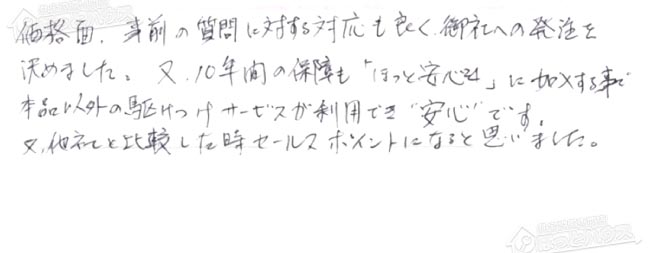 価格面、事前の質問に対する対応も良く、御社への発注を
決めました。又、10年間の保障も「ほっと安心24」に加入する事で
本品以外の駆けつけサービスが利用でき"安心"です。
又、他社と比較した時セールスポイントになると思いました。